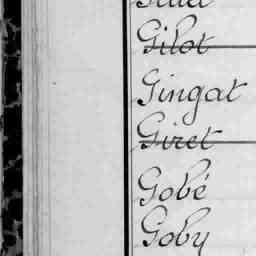 Gilot
Gingat
Giret
Gobé
Goby